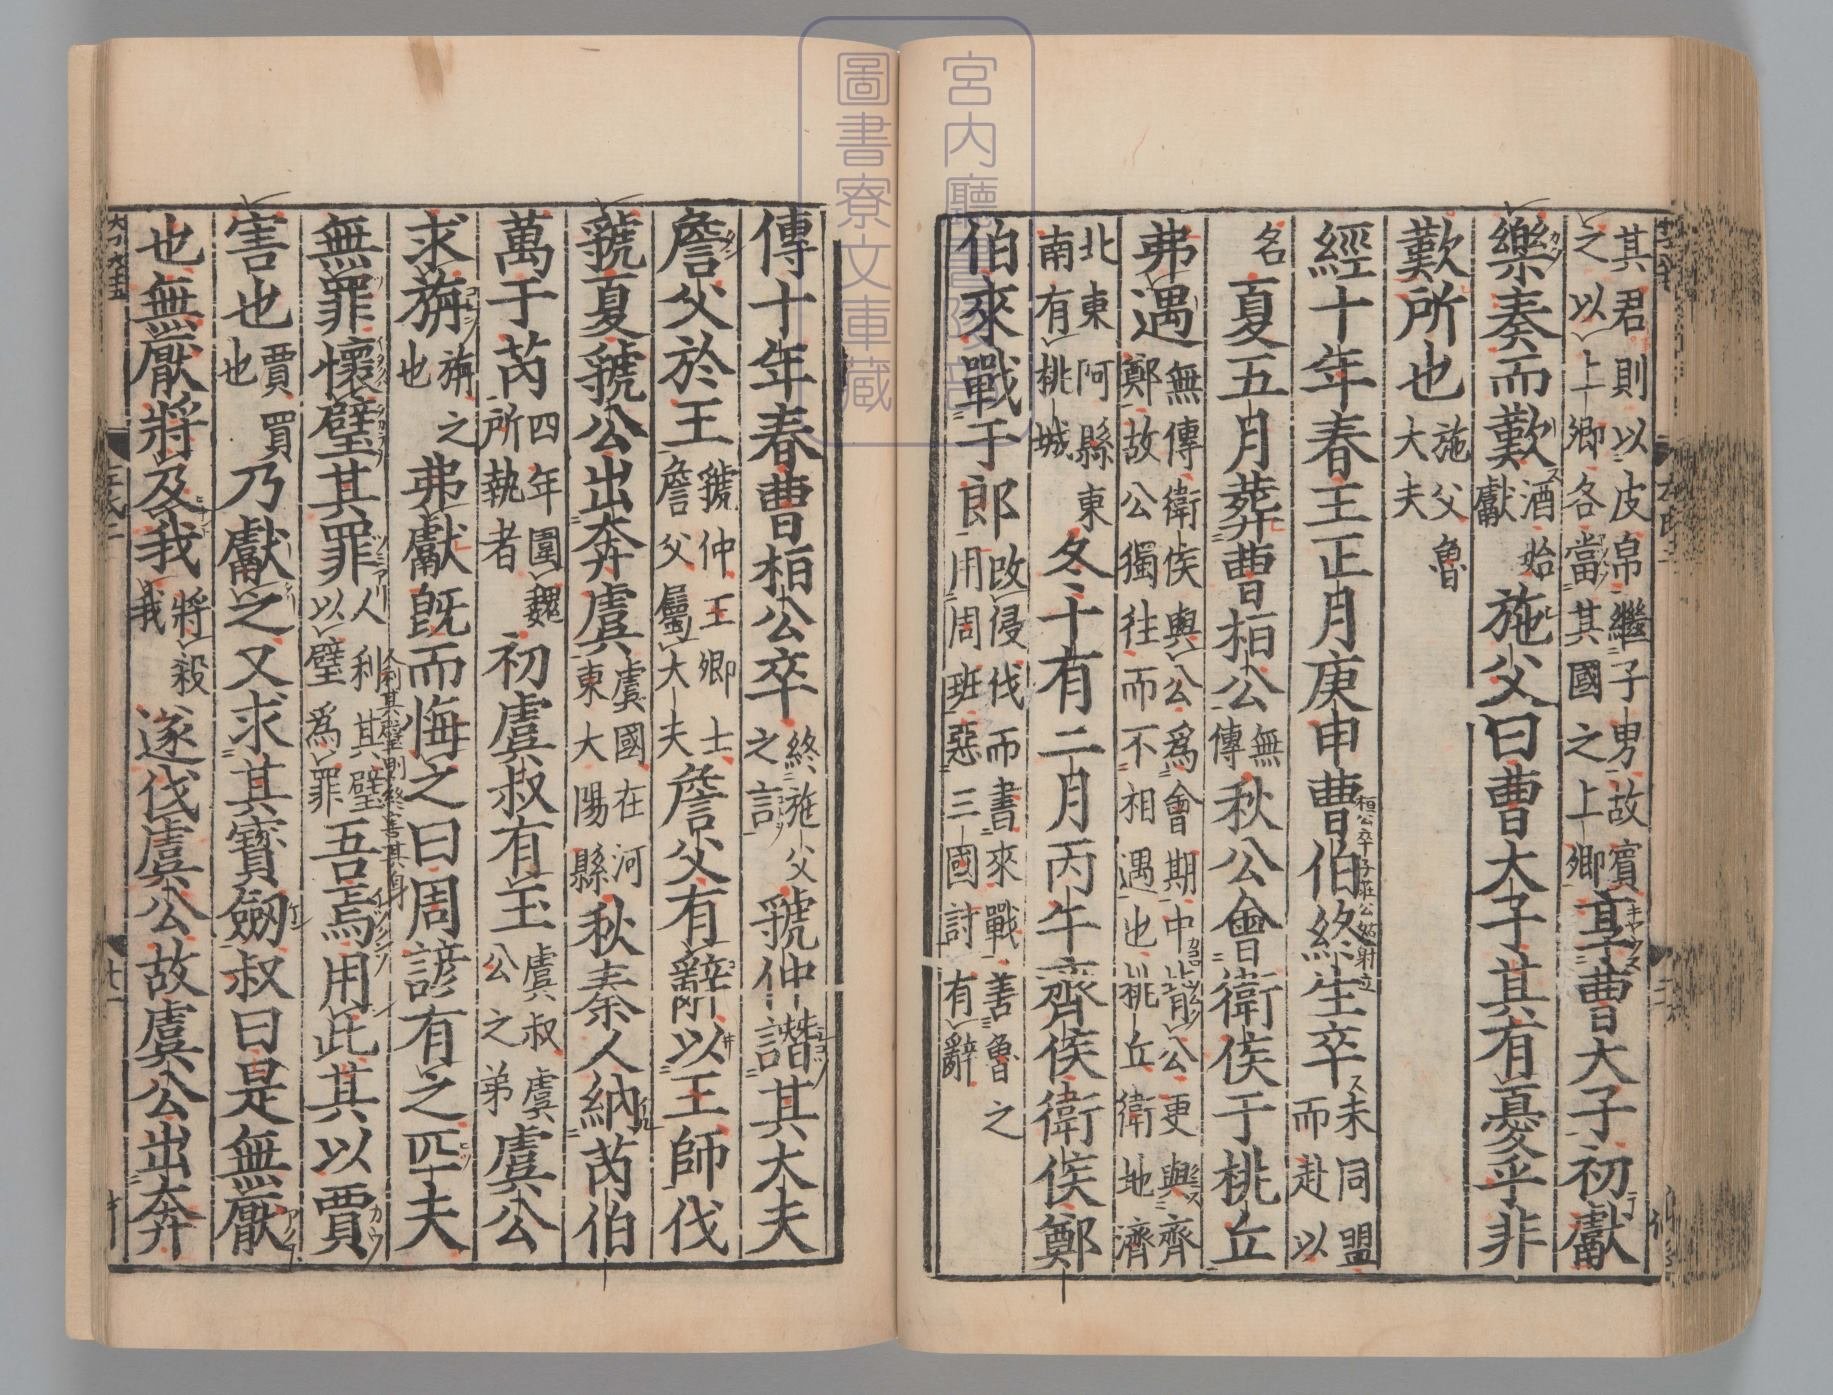 其君則以皮帛繼子男故賓
之以上卿各當其國之上卿
享曹大子初獻
樂奏而歎
酒始
獻
施父曰曹大子其有憂乎非
歎所也
施父魯
大夫
經十年春王正月庚申曹伯終生卒
未同盟
而赴以
名
夏五月葬曹桓公
無
傳
秋公會衛侯于桃丘
弗遇
無傳衛侯與公爲會期中背公更與齊
鄭故公獨往而不相遇也桃丘衛地濟
北東阿縣東
南有桃城
冬十有二月丙午齊侯衛侯鄭
伯來戰于郎
改侵伐而書來戰善魯之
用周班惡三國討有辭
傳十年春曹桓公卒
終施父
之言
虢仲譖其大夫
詹父於王
虢仲王卿士
詹父屬大夫
詹父有辭以王師伐
虢夏虢公出奔虞
虞國在河
東大陽縣
秋秦人納芮伯
萬于芮
四年圍魏
所執者
初虞叔有玉
虞叔虞
公之弟
虞公
求旃
旃之
也
弗獻既而悔之曰周諺有之匹夫
無罪懷璧其罪
人利其璧
以璧爲罪
吾焉用此其以賈
害也
賈買
也
乃獻之又求其寶劒叔曰是無厭
也無厭將及我
將殺
我
遂伐虞公故虞公出奔
宮内廳書陵部
圖書寮文庫藏